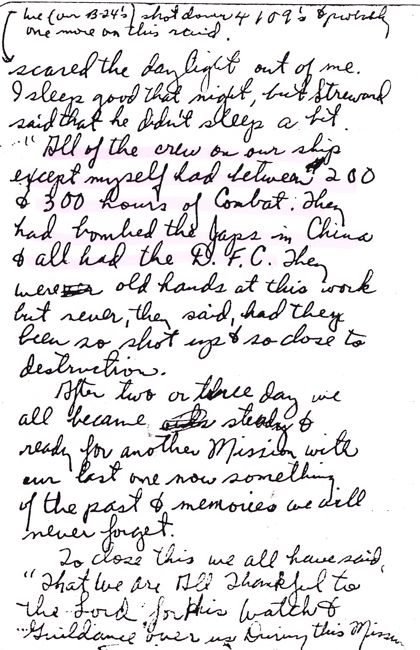 We (our B-24's) shot down 4 109's & probably
one more on this raid.
scared the day light out of me.
I sleep good that night, but Streward
said that he didn't sleep a bit.
"All of the crew on our ship
except myself had between 200
& 300 hours of Combat. They
had bombed the Japs in China
& all had the D.F.C. They
were old hands at this work
but never, they said, had they
been so shot up & so close to
destruction.
After two or three day we
all became steady &
ready for another Mission with
our last one now something
of the past & memories we will
never forget.
To close this we all have said,
"That We are All Thankful to
the Lord for His Watch &
Guildance over us During this Mission